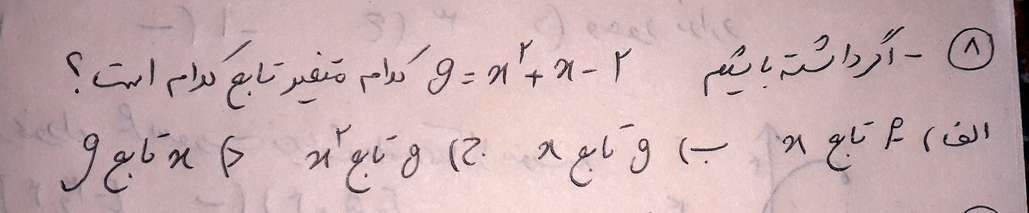 ۸- اگر داشته باشیم y = x² + x - ۲ کدام متغیر تابع کدام است؟
الف) تابع x ب) y تابع x ج) y تابع x² د) x تابع y